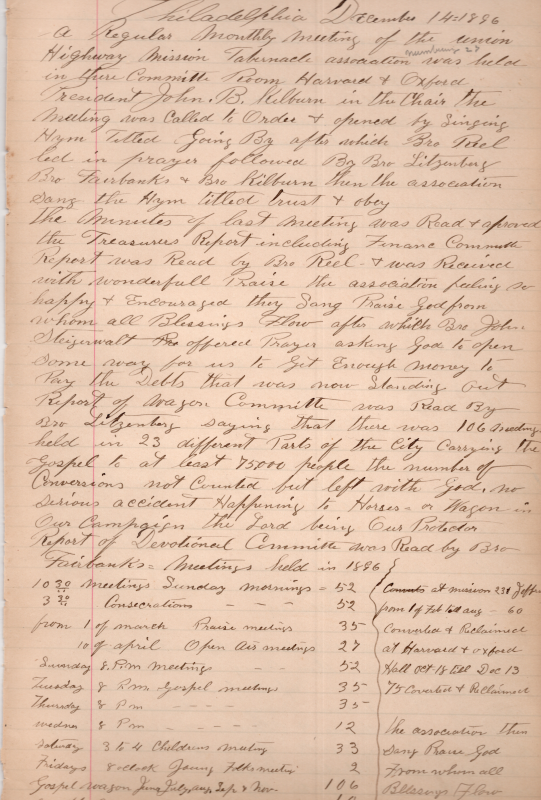 Philadelphia December 14=1896
A Regular Monthly meeting of the union
Highway Mission Tabernacle association was held
in there Committe Room Harvard & Oxford
President John. B. Kilburn in the Chair the
Meeting was Called to Order & opened by Singing
Hym Titled Going By after which Bro Reel
led in prayer followed By Bro Litzenberg
Bro Fairbanks & Bro Kilburn then the association
Sang the Hym titled trust & obey
the Minutes of last Meeting was Read & aproved
the Treasurers Report including Financ Committe
Report was Read by Bro Reel - & was Received
with wonderfull Praise the association feeling so
happy & Encouraged they Sang Praise God from
whom all Blessings Flow after which Bro John
Steigerwalt offered Prayer asking God to open
Some way for us to Get Enough money to
Pay the Debts that was now Standing out
Report of Wagon Committe was Read By
Bro Litzenberg Saying that there was 106 meetings
held in 23 different Parts of the City Carrying the
Gospel to at least 75000 people the number of
Conversions not Counted but left with God. no
Serious accident Happening to Horses - or Wagon in
Our Campaign the Lord being Our Protector
Report of Devotional Committe was Read by Bro
Fairbanks = Meetings held in 1896
10 30 meetings Sunday mornings = 52
3 30 Consecrations - - - 52
from 1 of march Praise meetings 35
10 of april Open Air meetings 27
Sunday 8 P.m. meetings - - 52
Tuesday 8 P.m. Gospel meetings 35
Thursday 8 Pm - - - - 35
wednes 8 Pm 12
Saturday 3 to 4 Childrens meeting 33
Fridays 8 oclock Young Folks meeting 2
Gospel wagon June July, aug, Sep & Nov - 106
at mission 231
from 1 of Feb aug - 60
Converted & Reclaimed
at Harvard & oxford
Hall Oct 18 till Dec 13
75 Coverted & Reclaimed
the association then
Sang Praise God
From whom all
Blessings Flow